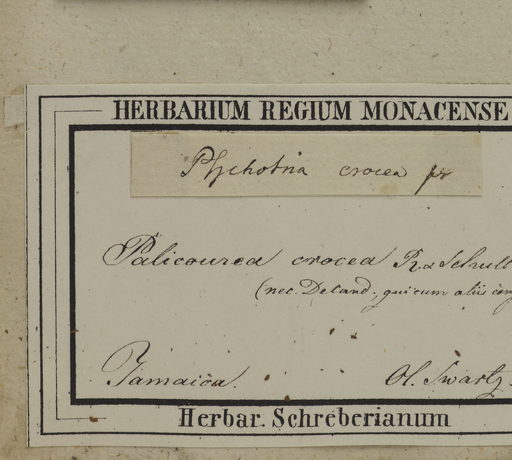 HERBARIUM REGIUM MONACENSE
Psychotria crocea
Palicourea crocea R. & Schult
(nec. Decand., qui cum aliis
Jamaica. Ol. Swartz.
Herbar. Schreberianum